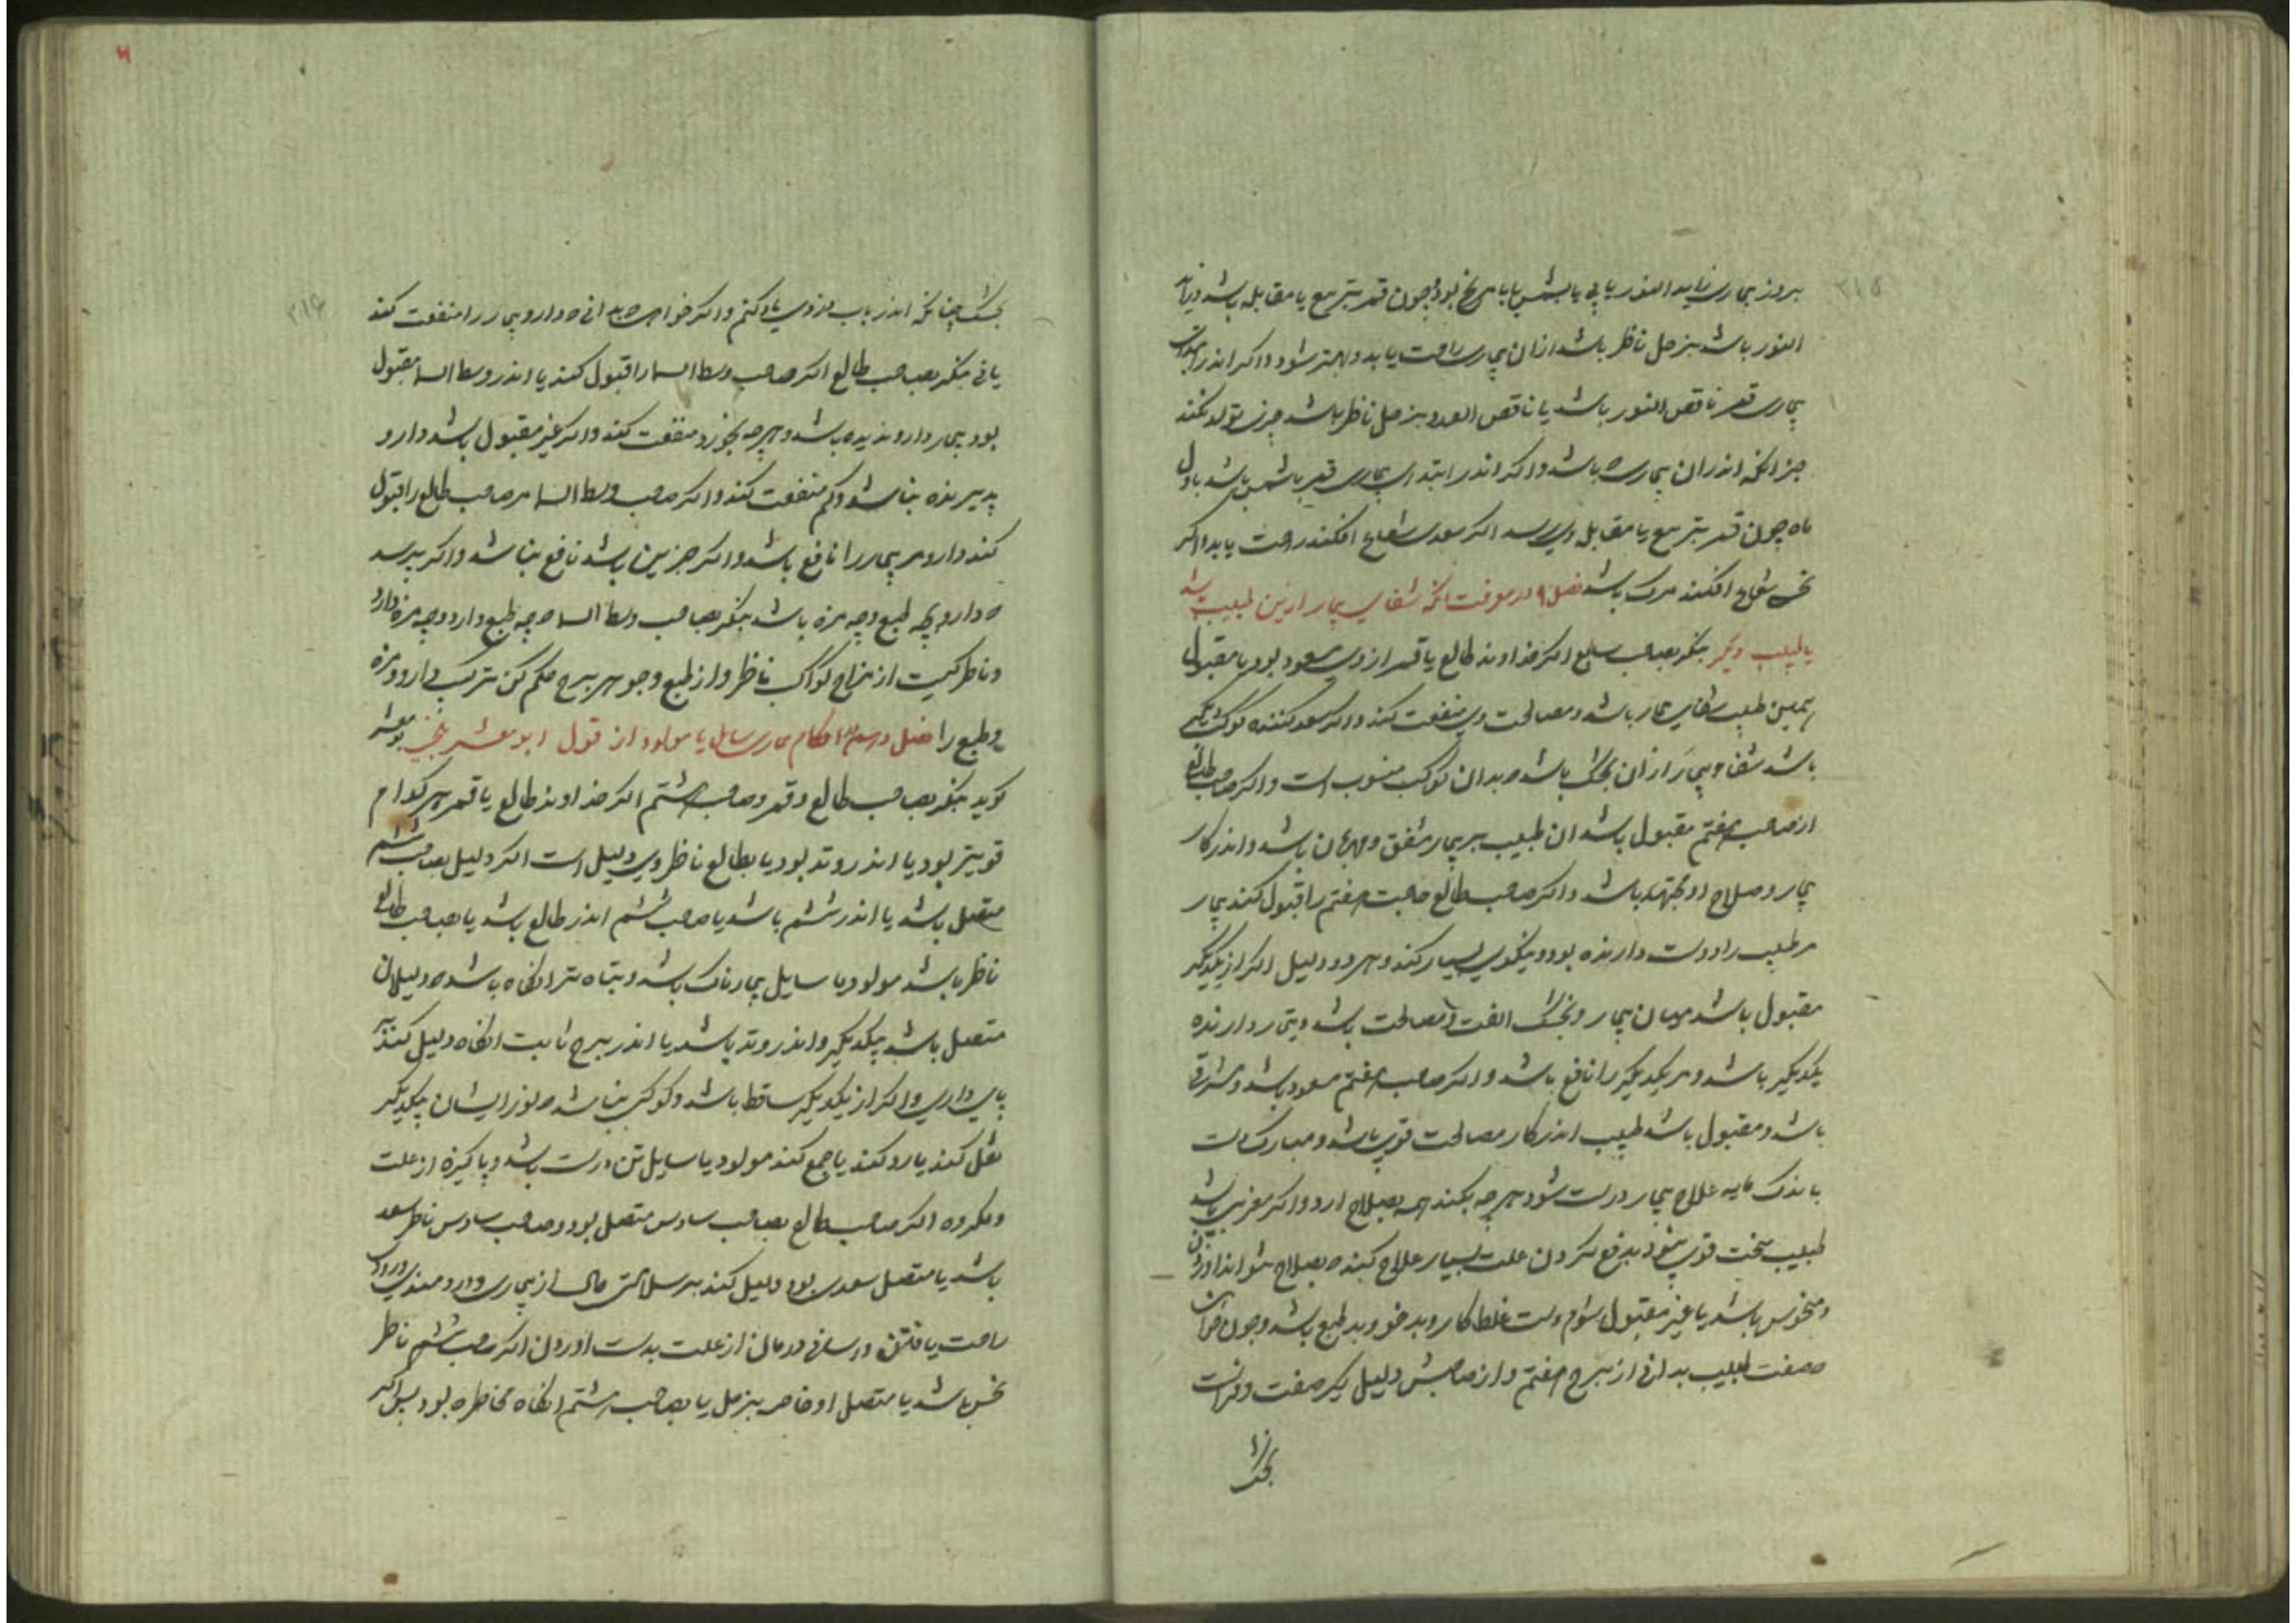 بروز بیماری زاید النور یابی یا بشمس یا با مریخ بود چون قمر بتربیع یا مقابله باشد و زاید
النور باشد بزحل ناظر باشد از ان بیماری راحت یابد و بهتر شود و اکر اندر ابتدای
بیماری قمر ناقص النور باشد یا ناقص العدد بزحل ناظر باشد چیزی تولد نکند
جز انکه اندران بیماری باشد و اکر اندر ابتدای بیماری قمر با شمس باشد باول
ماه چون قمر بتربیع یا مقابله وی رسد اکر سعدی شعاع افکند راحت یابد و اکر
نحسی شعاع افکند مرک باشد فصل ۹ در معرفت انکه شفای بیمار ازین طبیب باشد
یا طبیب دیکر بنکر بصاحب سابع اکر خداوند طالع یا قمر از وی مسعود بود یا مقبول
همین طبیب شفای بیمار باشد و مصالحت وی منفعت کند و اکر سعد کننده کوکب دیکر
باشد شفا و بیمار از ان بجشک باشد که بدان کوکب منسوب است و اکر صاحب طالع
از صاحب هفتم مقبول باشد ان طبیب بر بیمار مشفق و مهربان باشد و اندر کار
بیمار و صلاح او مجتهد باشد و اکر صاحب طالع صاحب هفتم را قبول کند بیمار
مر طبیب را دوست دارنده بود و نیکوی بسیار کند و هر دو دلیل اکر از یکدیکر
مقبول باشد میان بیمار و بجشک الفت و مصالحت باشد و تیمار دارنده
یکدیکر باشد و مر یکدیکر را نافع باشد و اکر صاحب هفتم مسعود باشد و مشرقی
باشد و مقبول باشد طبیب اندر کار مصالحت قوی باشد و مبارک دست
باندک مایه علاج بیمار درست شود هرچه بکند همه بصلاح ارد و اکر مغربی باشد
طبیب سخت قوی نبود بدفع کردن علت بسیار علاج کند که بصلاح نتواند اوردن
و منحوس باشد یا غیر مقبول شوم دست غلط کار و بدخو و بد طبع باشد و چون
صفت طبیب بدانی از برج هفتم و از صاحبش دلیل کیر صفت
بجشک
۳۱۵
بجشک چنانکه اندر باب دزدی یاد کنیم و اکر خواهی که بدانی که دارو بیمار را منفعت کند
یا نی بنکر بصاحب طالع اکر صاحب وسط السما را قبول کند یا اندر وسط السما مقبول
بود بیمار دارو پذیده باشد و هرچه بخورد منفعت کند و اکر غیر مقبول باشد دارو
پذیرنده نباشد و کم منفعت کند و اکر صاحب وسط السما مر صاحب طالع را قبول
کند دارو مر بیمار را نافع باشد و اکر جز این باشد نافع نباشد و اکر پرسد
که دارو بچه طبع و چه مزه باشد بنکر بصاحب وسط السما که چه طبع دارد و چه مزه دارد
و ناظر کیست از مزاج کواکب ناظر و از طبع و جوهر برج حکم کن ترکیب دارو و مزه
و طبع را فصل در احکام بیماری سایل یا مولود از قول ابو معشر بلخی بو معشر
کوید بنکر بصاحب طالع و قمر و صاحب هشتم اکر خداوند طالع یا قمر هر کدام
قویتر بود یا اندر وتد بود یا بطالع ناظر وی دلیل است اکر دلیل بصاحب ششم
متصل باشد یا اندر ششم باشد یا صاحب ششم اندر طالع باشد یا بصاحب طالع
ناظر باشد مولود یا سایل بیمارناک باشد و تباه تر انکاه باشد که دلیلان
متصل باشد بیکدیکر و اندر وتد باشد یا اندر برج ثابت انکاه دلیل کند بر
پای داری و اکر از یکدیکر ساقط باشد و کوکبی نباشد که نور ایشان بیکدیکر
نقل کند یا رد کند یا جمع کند مولود یا سایل تن درست باشد و پاکیزه از علت
و مکروه اکر صاحب طالع بصاحب سادس متصل بود و صاحب سادس ناظر سعد
باشد یا متصل سعدی بود دلیل کند بر سلامتی حال از بیماری و دردمندی و زود
راحت یافتن و درمان از علت بدست اوردن اکر صاحب ششم ناظر
نحس باشد یا متصل او خاصه بزحل یا بصاحب هشتم انکاه مخاطره بود پس اکر
۳۱۶